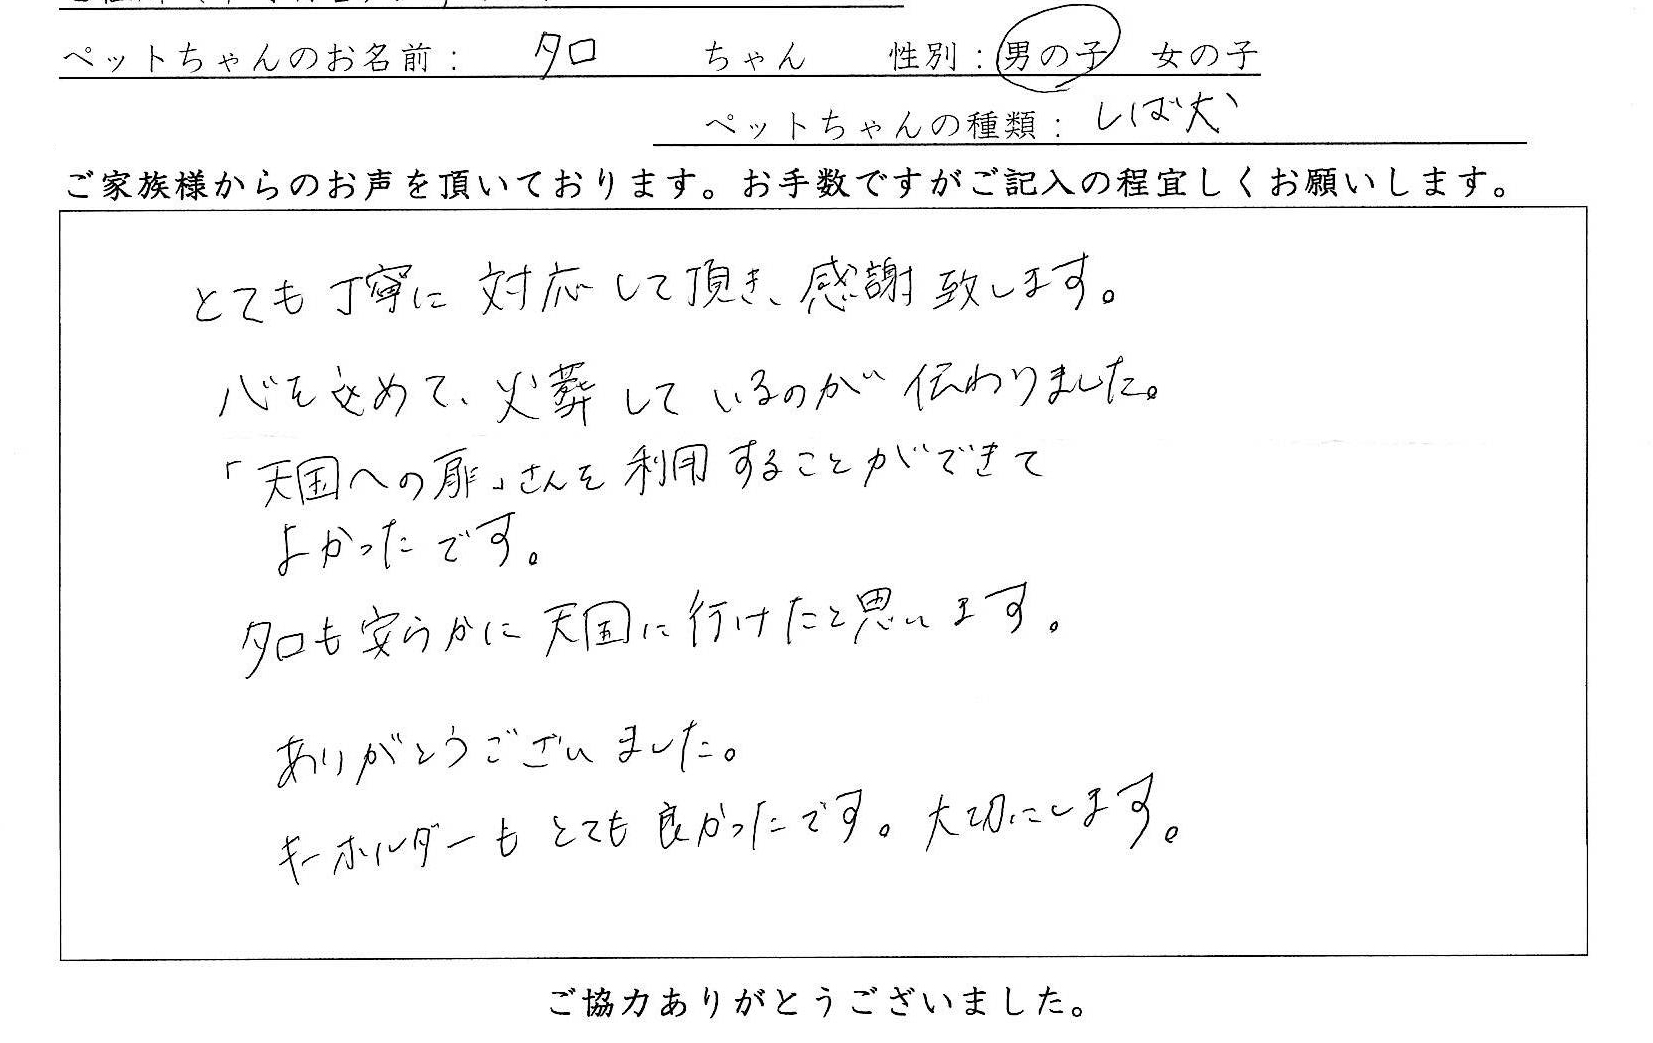 ペットちゃんのお名前： タロ ちゃん 性別：男の子 女の子
ペットちゃんの種類： しば犬
ご家族様からのお声を頂いております。お手数ですがご記入の程宜しくお願いします。
とても丁寧に対応して頂き、感謝致します。
心を込めて、火葬しているのが伝わりました。
「天国への扉」さんを利用することができて
よかったです。
タロも安らかに天国に行けたと思います。
ありがとうございました。
キーホルダーもとても良かったです。大切にします。
ご協力ありがとうございました。